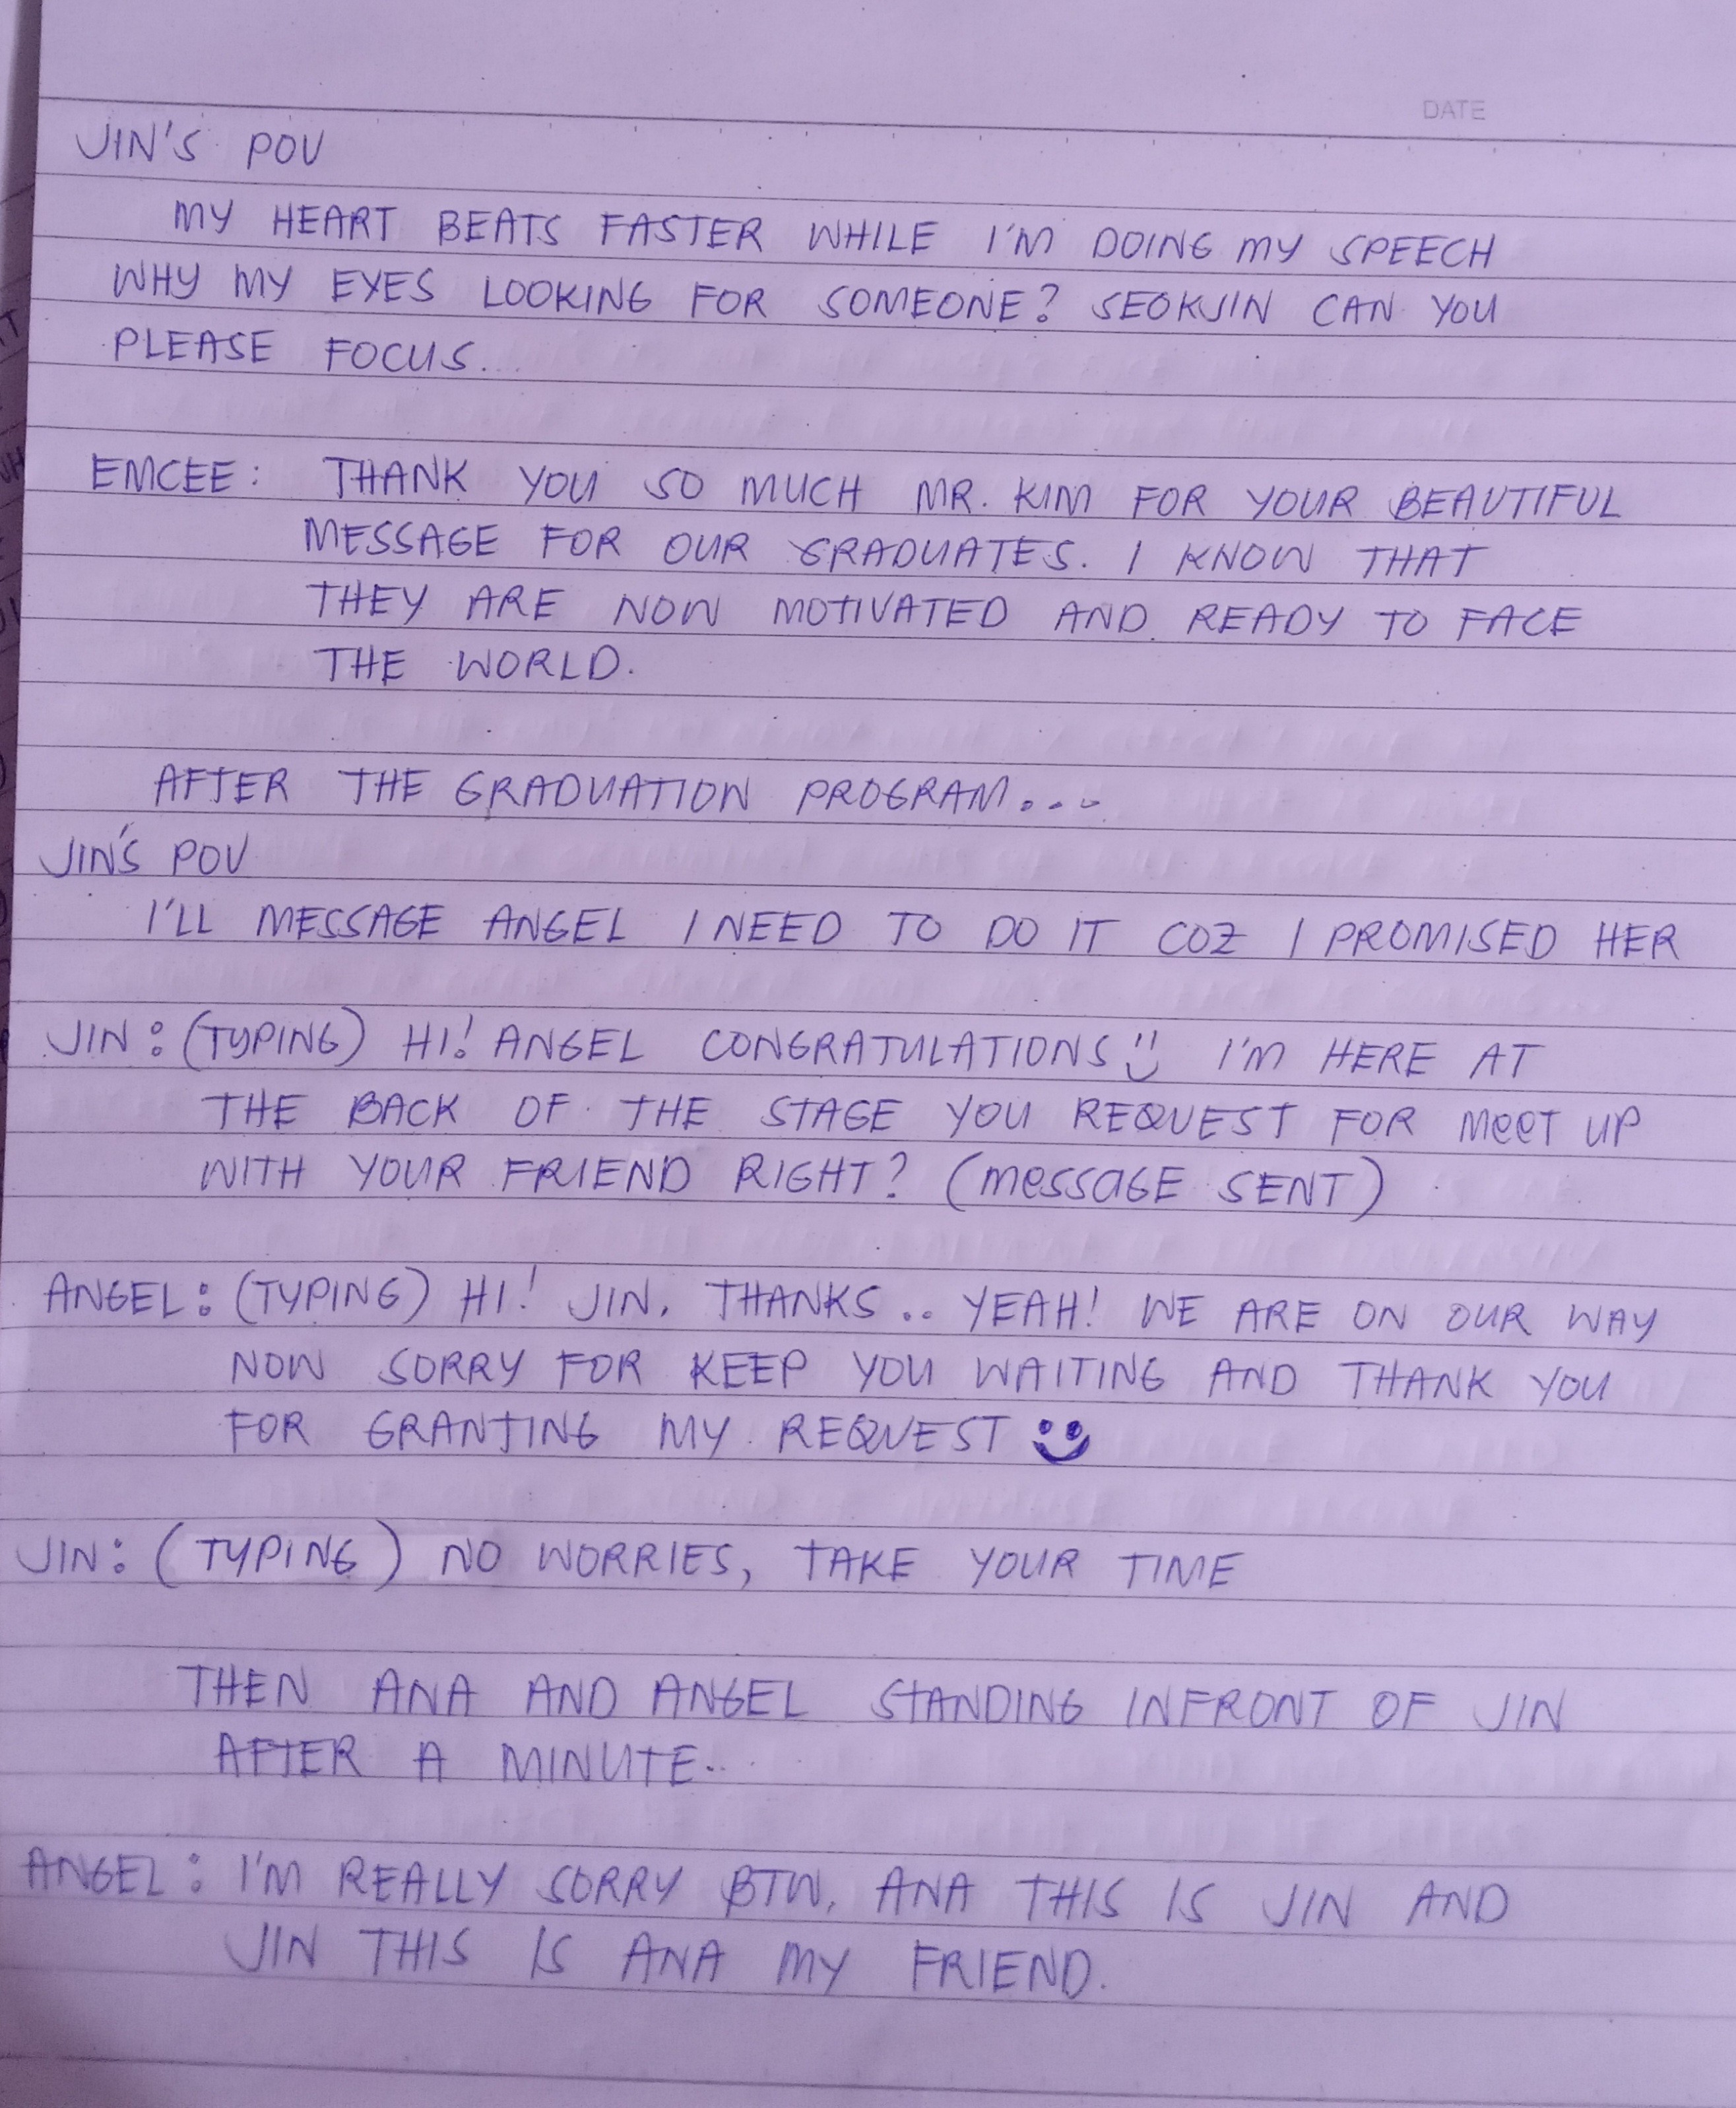 DATE
JIN'S POV
MY HEART BEATS FASTER WHILE I'M DOING MY SPEECH
WHY MY EYES LOOKING FOR SOMEONE? SEOKJIN CAN YOU
PLEASE FOCUS...
EMCEE: THANK YOU SO MUCH MR. KIM FOR YOUR BEAUTIFUL
MESSAGE FOR OUR GRADUATES. I KNOW THAT
THEY ARE NOW MOTIVATED AND READY TO FACE
THE WORLD.
AFTER THE GRADUATION PROGRAM...
JIN'S POV
I'LL MESSAGE ANGEL I NEED TO DO IT COZ I PROMISED HER
JIN: (TYPING) HI! ANGEL CONGRATULATIONS I'M HERE AT
THE BACK OF THE STAGE YOU REQUEST FOR MeeT UP
WITH YOUR FRIEND RIGHT? (messaGE SENT)
ANGEL: (TYPING) HI! JIN. THANKS.. YEAH! WE ARE ON OUR WAY
NOW SORRY FOR KEEP YOU WAITING AND THANK YOU
FOR GRANTING MY REQUEST
JIN: (TYPING) NO WORRIES, TAKE YOUR TIME
THEN ANA AND ANGEL STANDING INFRONT OF JIN
AFTER A MINUTE..
ANGEL: I'M REALLY SORRY BTW, ANA THIS IS JIN AND
JIN THIS IS ANA MY FRIEND.